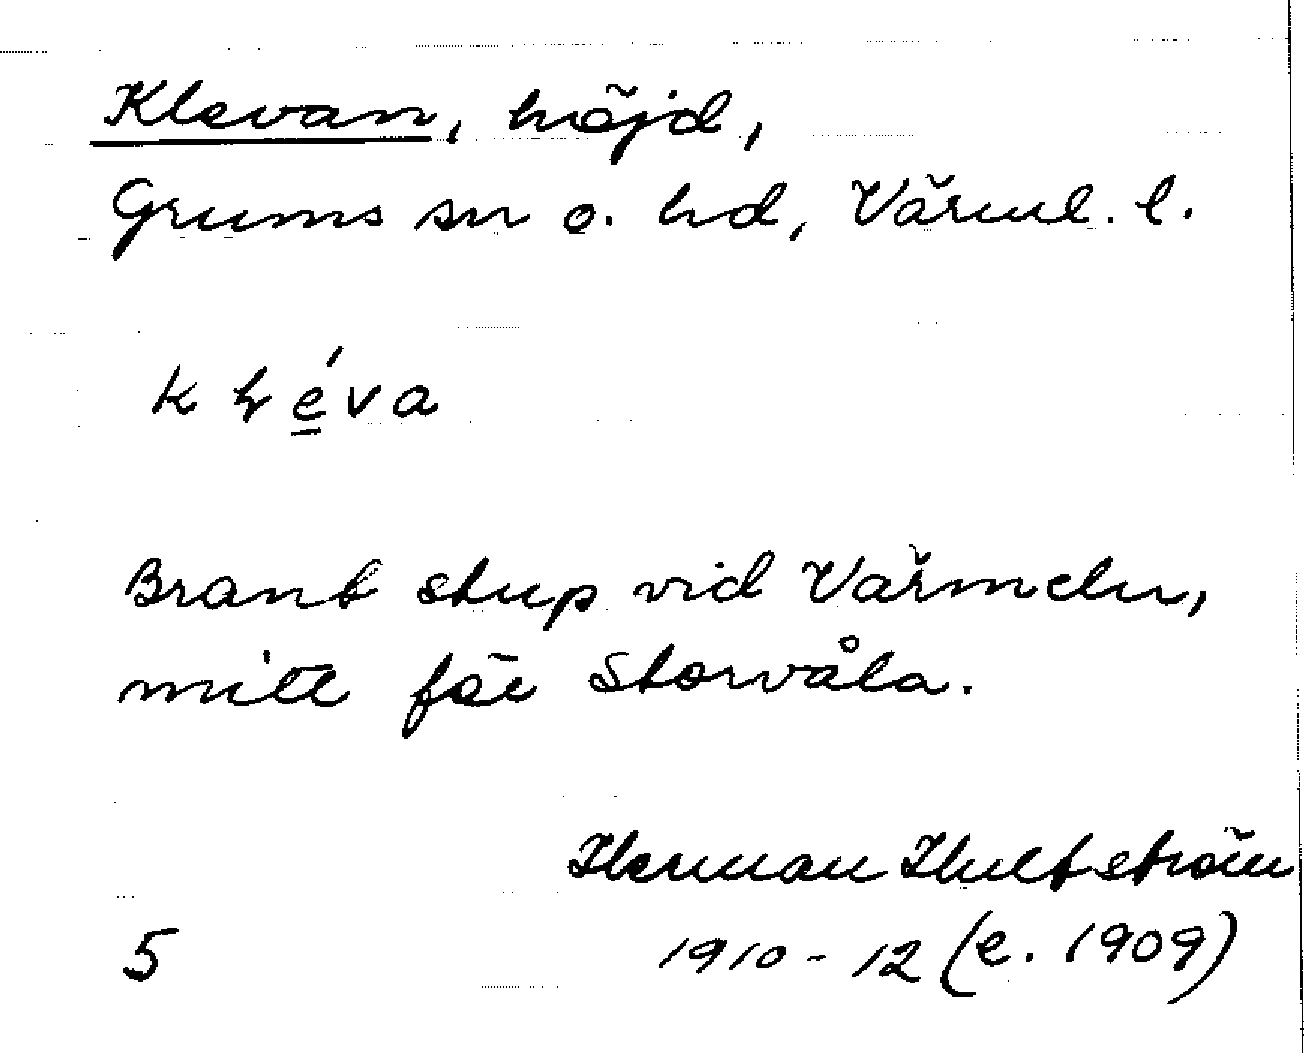 Klevan, höjd,
Grums sn o. hd, Värml. l.
k ɽ é v a
Brant stup vid Värmeln,
mitt för Storvåla.
Herman Hultström
5 1910-12 (e. 1909)